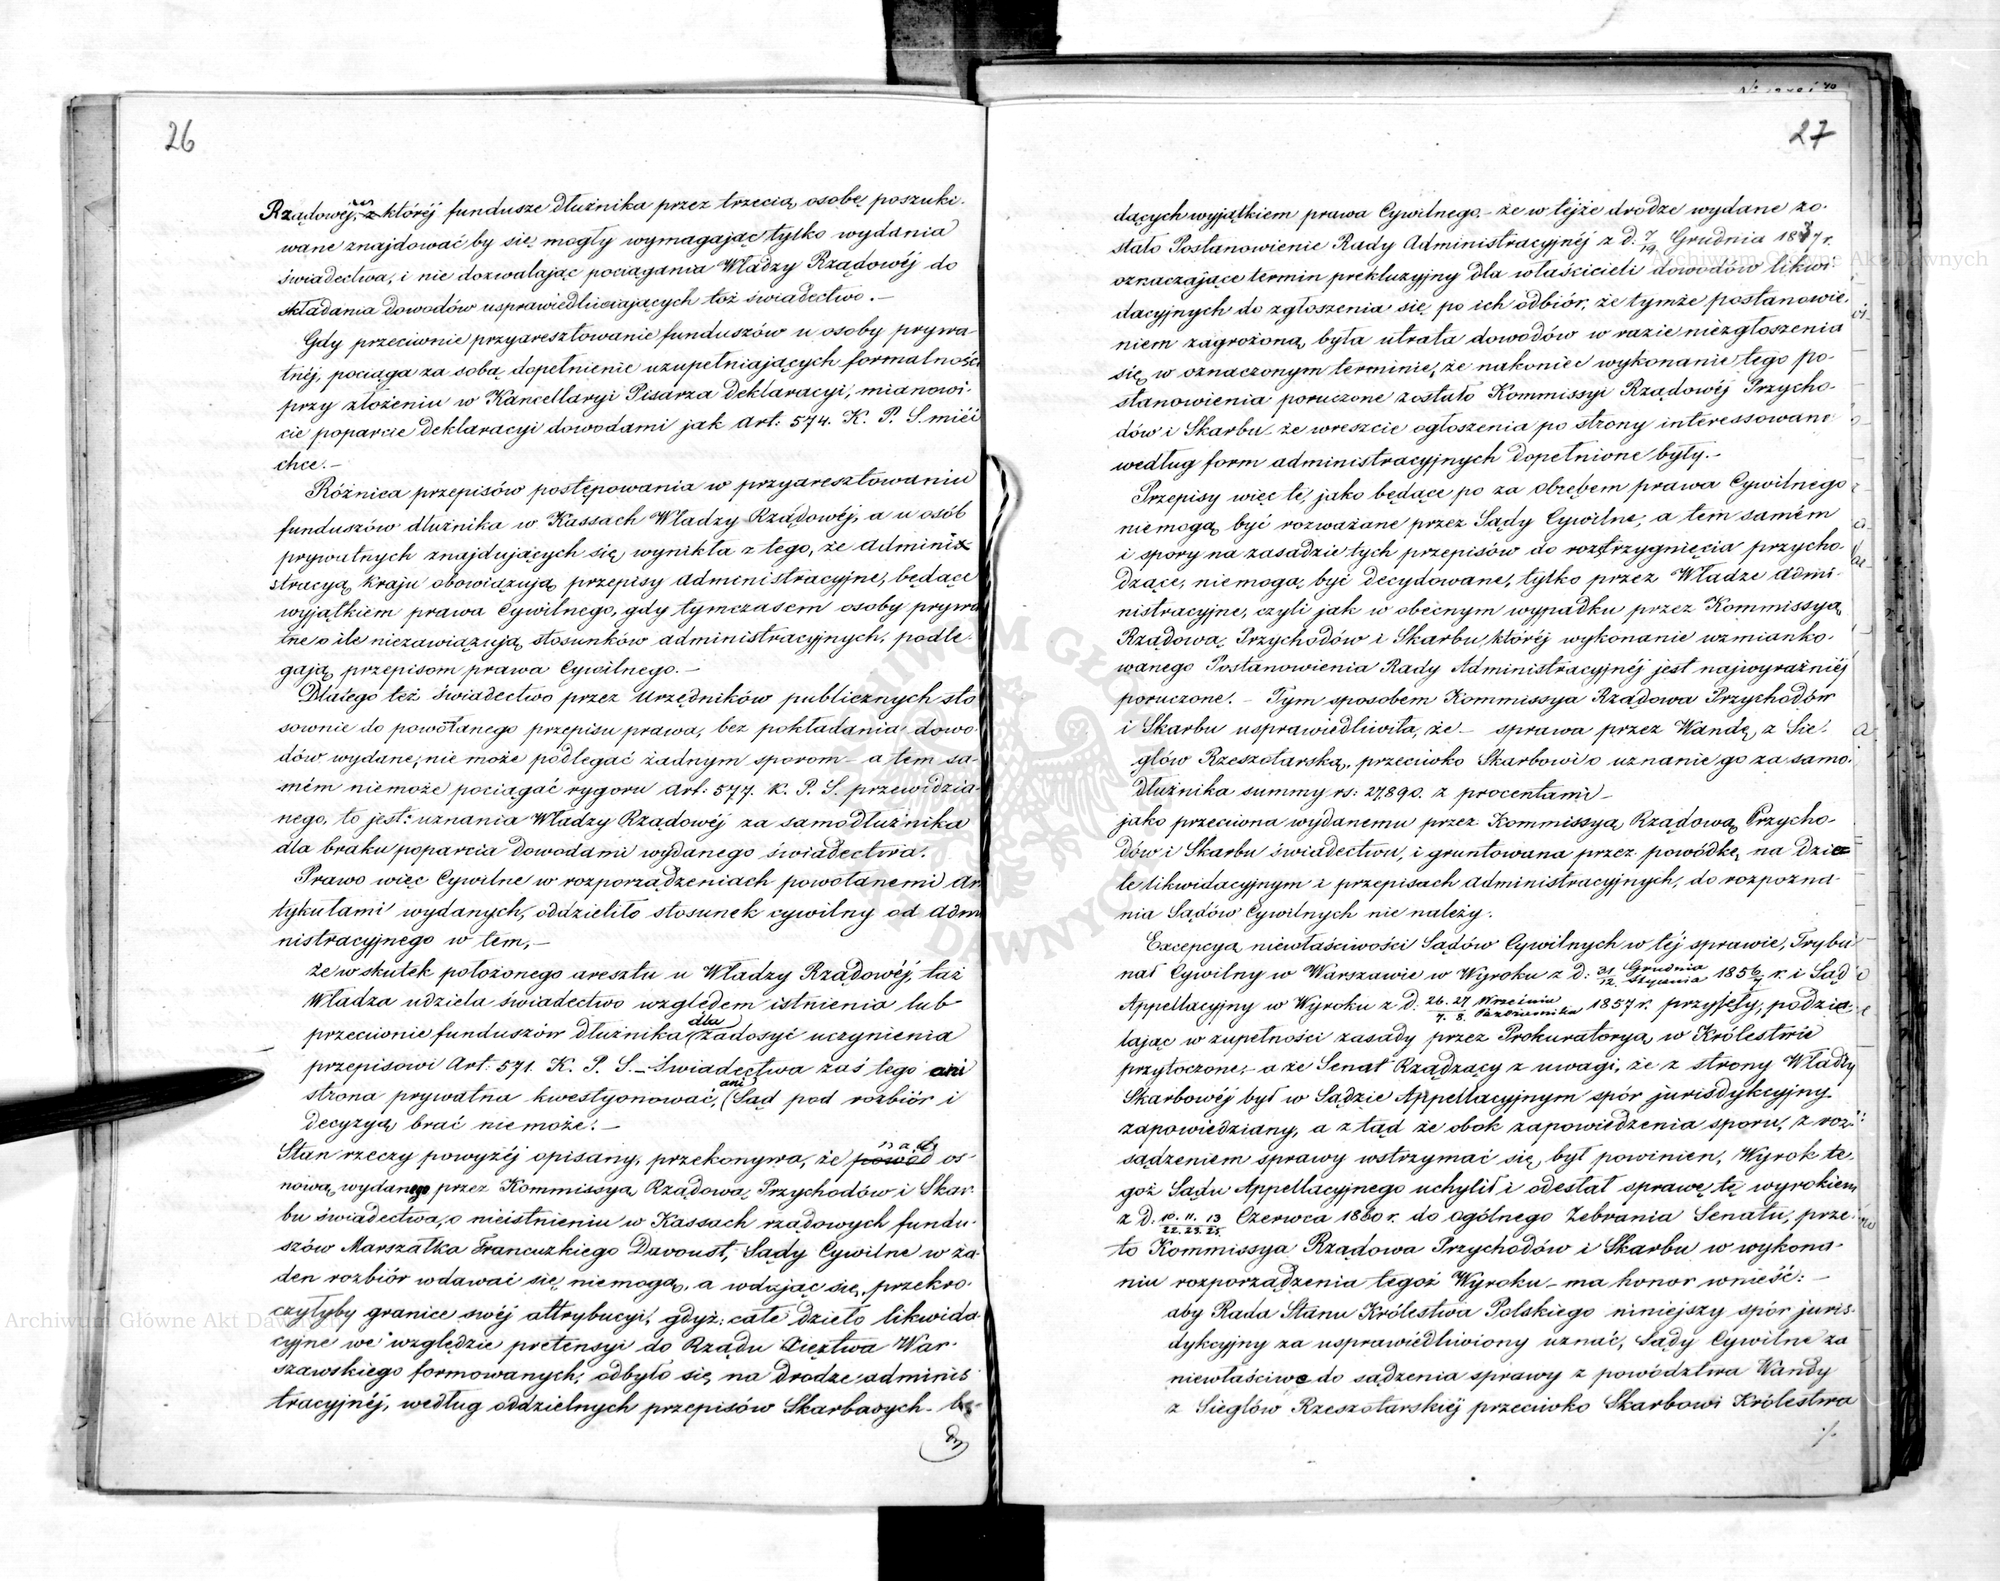 26
Rządowéj, w któréj fundusze dłużnika przez trzecią osobę poszuki-
wane znajdować by się mogły wymagając tylko wydania
świadectwa, i nie dozwalając pociągania Władzy Rządowéj do
składania dowodów usprawiedliwiających toż świadectwo.-
Gdy przeciwnie przyaresztowanie funduszów u osoby prywa-
tnéj, pociąga za sobą dopełnienie uzupełniających formalności
przy złożeniu w Kancellaryi Pisarza deklaracyi, mianowi-
cie poparcie deklaracyi dowodami jak Art: 574. K. P. S. mieć
chce.-
Różnica przepisów postępowania w przyaresztowaniu
funduszów dłużnika w Kassach Władzy Rządowéj, a u osób
prywatnych znajdujących się, wynikła z tego, że Admini-
stracyą Kraju obowiązują przepisy Administracyjne, będące
wyjątkiem prawa Cywilnego, gdy tymczasem osoby prywa
tne o ile niezawiązują stosunków administracyjnych, podle-
gają przepisom prawa Cywilnego.-
Dlatego też świadectwo przez Urzędników publicznych sto
sownie do powołanego przepisu prawa, bez pokładania dowo
dów wydane, nie może podlegać żadnym sporom - a tem sa-
mém niemoże pociągać rygoru Art: 577. K. P. S. przewidzia-
nego, to jest: uznania Władzy Rządowéj za samodłużnika
dla braku poparcia dowodami wydanego świadectwa.
Prawo więc Cywilne w rozporządzeniach powołanemi Ar
tykułami wydanych, oddzieliło stosunek cywilny od Admi
nistracyjnego w tem,-
że w skutek położonego aresztu u Władzy Rządowéj, taż
Władza udziela świadectwo względem istnienia lub
przeciwnie funduszów dłużnika dla zadosyć uczynienia
przepisowi Art: 571. K. P. S.- Świadectwa zaś tego ani
strona prywatna kwestyonować, ani Sąd pod rozbiór i
decyzyą brać niemoże.-
Stan rzeczy powyżéj opisany, przekonywa, że powód os-
nową wydanego przez Kommissyą Rządową Przychodów i Skar-
bu świadectwa, o nieistnieniu w Kassach rządowych fundu-
szów Marszałka Francuzkiego Davoust, Sądy Cywilne w ża
den rozbiór wdawać się niemogą, a wdając się, przekro-
czyłyby granice swéj attrybucyi, gdyż całe dzieło likwida
cyjne we względzie pretensyi do Rządu Xięztwa War-
szawskiego formowanych, odbyło się na drodze adminis
tracyjnéj, według oddzielnych przepisów Skarbowych - bę-
27
dących wyjątkiem prawa Cywilnego - że w téjże drodze wydane zo-
stało Postanowienie Rady Administracyjnéj z d. 7/19 Grudnia 1837 r.
oznaczające termin prekluzyjny dla właścicieli dowodów likwi-
dacyjnych do zgłoszenia się po ich odbiór, że tymże postanowie-
niem zagrożoną była utrata dowodów w razie niezgłoszenia
się w oznaczonym terminie, że nakoniec wykonanie tego po-
stanowienia poruczone zostało Kommissyi Rządowéj Przycho-
dów i Skarbu - że wreszcie ogłoszenia po strony interessowane
według form administracyjnych dopełnione były.-
Przepisy więc te, jako będące po za obrębem prawa Cywilnego
niemogą być rozważane przez Sądy Cywilne, a tem samém
i spory na zasadzie tych przepisów do roztrzygnięcia przycho-
dzące, niemogą być decydowane, tylko przez Władze Admi-
nistracyjne, czyli jak w obecnym wypadku przez Kommissyą
Rządową Przychodów i Skarbu, któréj wykonanie wzmianko-
wanego Postanowienia Rady Administracyjnéj jest najwyraźniéj
poruczone.- Tym sposobem Kommissya Rządowa Przychodów
i Skarbu usprawiedliwiła, że - sprawa przez Wandę z Sie-
głów Rzeszotarską, przeciwko Skarbowi o uznanie go za samo-
dłużnika summy rs: 27,890. z procentami -
jako przeciwna wydanemu przez Kommissyą Rządową Przycho-
dów i Skarbu świadectwu, i gruntowana przez powódkę na dzie-
le likwidacyjnym i przepisach Administracyjnych, do rozpozna-
nia Sądów Cywilnych nie należy.
Excepcyą niewłaściwości Sądów Cywilnych w téj sprawie, Trybu
nał Cywilny w Warszawie w Wyroku z d: 31 Grudnia/12 Stycznia 1856/7 r. i Sąd
Appellacyjny w Wyroku z D: 26. 27 Września/7. 8. Października 1857 r. przyjęły, podzie-
lając w zupełności zasady przez Prokuratoryą w Królestwie
przytoczone,- a że Senat Rządzący z uwagi, że z strony Władzy
Skarbowéj był w Sądzie Appellacyjnym spór jurisdykcyjny
zapowiedziany, a z tąd że obok zapowiedzenia sporu, z roz-
sądzeniem sprawy wstrzymać się był powinien, Wyrok te-
goż Sądu Appellacyjnego uchylił i odesłał sprawę tę wyrokiem
z D. 10. 11. 13/22. 23. 25. Czerwca 1860 r. do ogólnego Zebrania Senatu, prze-
to Kommissya Rządowa Przychodów i Skarbu w wykona-
niu rozporządzenia tegoż Wyroku - ma honor wnieść: -
aby Rada Stanu Królestwa Polskiego niniejszy spór juris-
dykcyjny za usprawiedliwiony uznać, Sądy Cywilne za
niewłaściwe do sądzenia sprawy z powództwa Wandy
z Siegłów Rzeszotarskiéj przeciwko Skarbowi Królestwa
./.
Archiwum Główne Akt Dawnych
Archiwum Główne Akt Dawnych